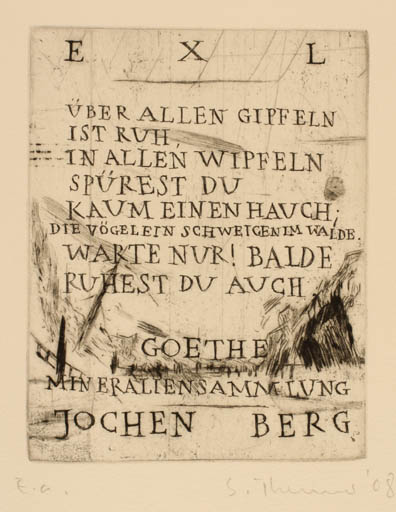 E X L
ÜBER ALLEN GIPFELN
IST RUH,
IN ALLEN WIPFELN
SPÜREST DU
KAUM EINEN HAUCH;
DIE VÖGELEIN SCHWEIGEN IM WALDE.
WARTE NUR! BALDE
RUHEST DU AUCH
GOETHE
MINERALIENSAMMLUNG
JOCHEN BERG
E.a. '08